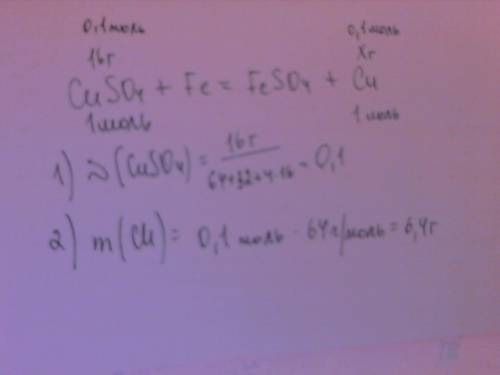 0,1 моль 0,1 моль
16г Xг
CuSO4 + Fe = FeSO4 + Cu
1 моль 1 моль
1) ν(CuSO4) = 16г / 64+32+4·16 = 0,1
2) m(Cu) = 0,1 моль · 64г/моль = 6,4г